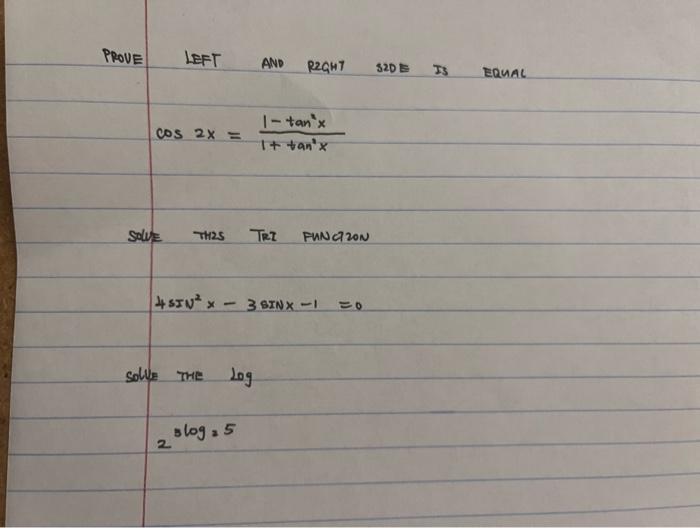 PROVE LEFT AND RIGHT SIDE IS EQUAL
cos 2x = (1 - tan²x) / (1 + tan²x)
SOLVE THIS TRI FUNCTION
4 SIN² x - 3 SINX - 1 = 0
SOLVE THE Log
2^(3 log₂ 5)